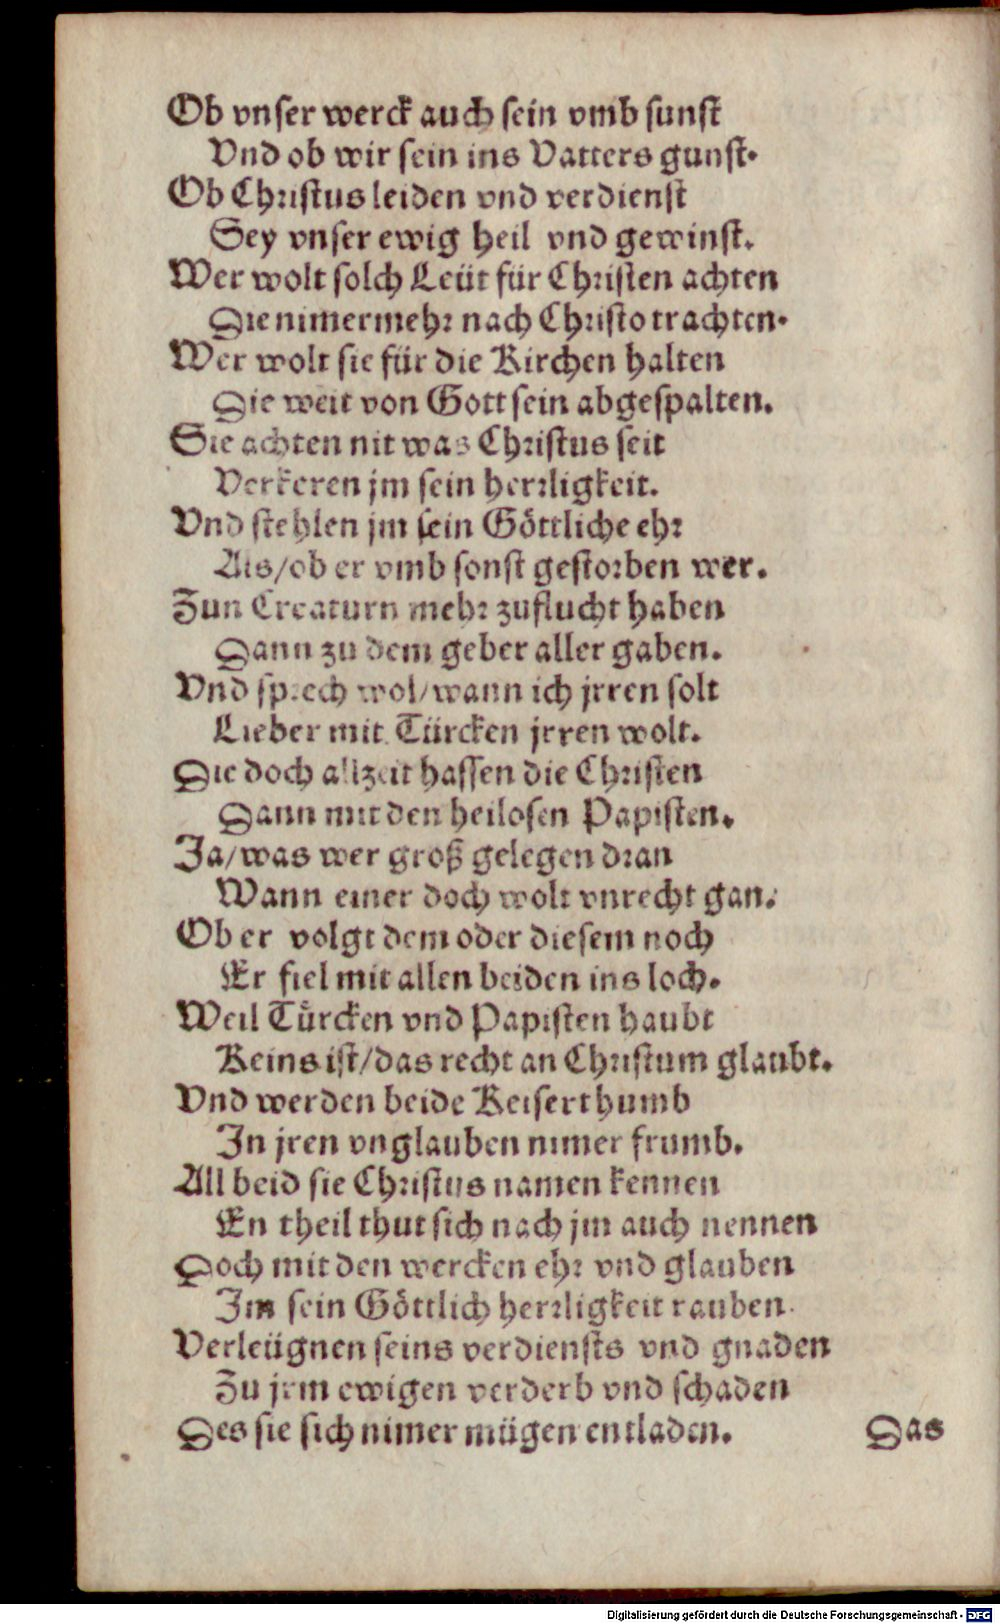 Ob vnser werck auch sein vmb sunst
Vnd ob wir sein ins Vatters gunst.
Ob Christus leiden vnd verdienst
Sey vnser ewig heil vnd gewinst.
Wer wolt solch Leüt für Christen achten
Die nimermehr nach Christo trachten.
Wer wolt sie für die Kirchen halten
Die weit von Gott sein abgespalten.
Sie achten nit was Christus seit
Verkeren jm sein herrligkeit.
Vnd stehlen jm sein Göttliche ehr
Als/ob er vmb sonst gestorben wer.
Zun Creaturn mehr zuflucht haben
Dann zu dem geber aller gaben.
Vnd sprech wol/wann ich jrren solt
Lieber mit Türcken jrren wolt.
Die doch allzeit hassen die Christen
Dann mit den heilosen Papisten.
Ja/was wer groß gelegen dran
Wann einer doch wolt vnrecht gan.
Ob er volgt dem oder diesem noch
Er fiel mit allen beiden ins loch.
Weil Tuͤrcken vnd Papisten haubt
Keins ist/das recht an Christum glaubt.
Vnd werden beide Keiserthumb
In jren vnglauben nimer frumb.
All beid sie Christus namen kennen
En theil thut sich nach jm auch nennen
Doch mit den wercken ehr vnd glauben
Im sein Göttlich herrligkeit rauben.
Verleügnen seins verdiensts vnd gnaden
Zu jrm ewigen verderb vnd schaden
Des sie sich nimer mügen entladen.
Das
Digitalisierung gefördert durch die Deutsche Forschungsgemeinschaft - DFG